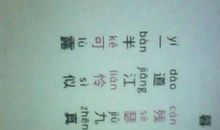 yí dào cán
一道残
bàn jiāng sè
半江瑟
kě lián jiǔ
可怜九
lù sì zhēn
露似真